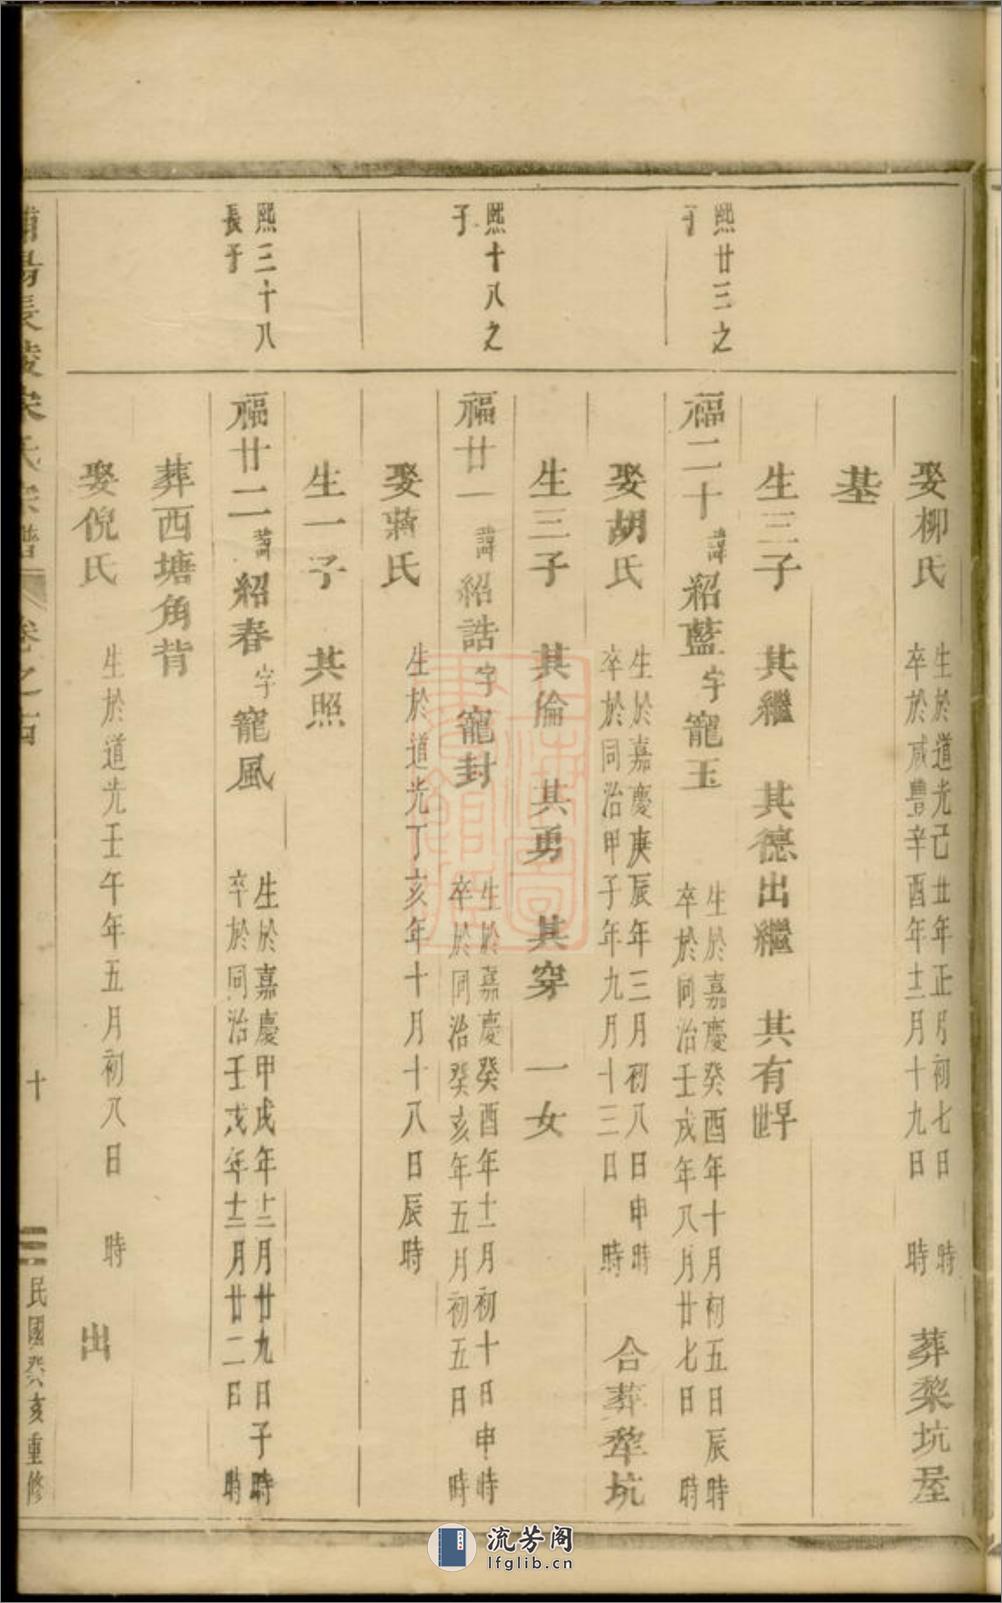 娶柳氏 生於道光己丑年正月初七日 時 卒於咸豐辛酉年十二月十九日 時 葬棃坑屋
基
生三子 其繼 其德出繼 其有早世
熙廿三之子
福二十諱紹藍字寵玉 生於嘉慶癸酉年十月初五日辰時 卒於同治壬戌年八月廿七日 時
娶胡氏 生於嘉慶庚辰年三月初八日申時 卒於同治甲子年九月十三日 時 合葬犂坑
生三子 其倫 其勇 其穿 一女
熙十八之子
福廿一諱紹誥字寵封 生於嘉慶癸酉年十二月初十日申時 卒於同治癸亥年五月初五日 時
娶蔣氏 生於道光丁亥年十月十八日辰時
生一子 其照
熙三十八長子
福廿二諱紹春字寵風 生於嘉慶甲戌年十二月廿九日子時 卒於同治壬戌年十二月廿二日 時
葬西塘角背
娶倪氏 生於道光壬午年五月初八日 時 出
浦陽長陵宋氏宗譜 卷之四 十 民國癸亥重修
流芳阁
lfglib.cn